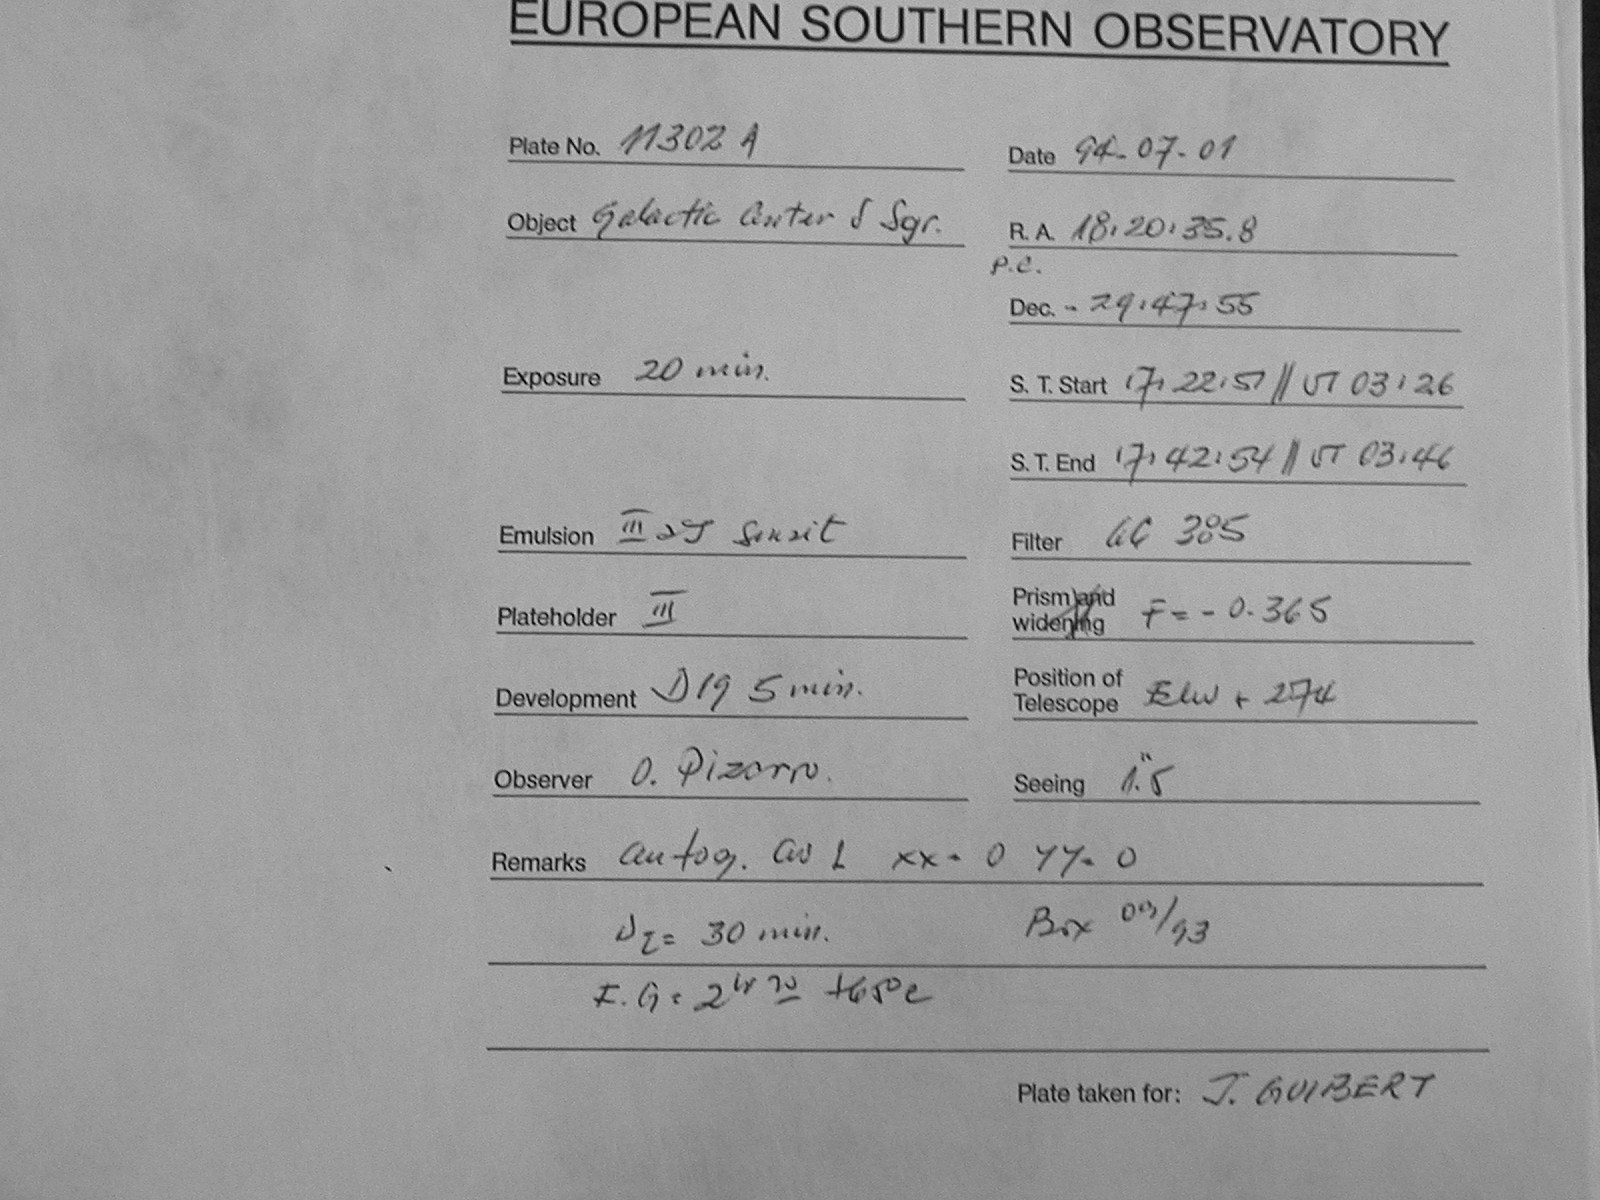 EUROPEAN SOUTHERN OBSERVATORY
Plate No. 11302 A
Date 94-07-01
Object Galactic Center δ Sgr.
R. A. 18:20:35.8
P.C.
Dec. - 29:47:55
Exposure 20 min.
S. T. Start 17:22:51 // UT 03:26
S. T. End 17:42:54 // UT 03:46
Emulsion III aJ Sensit
Filter GG 385
Plateholder III
Prism and widening F = - 0.365
Development D19 5 min.
Position of Telescope EW + 274
Observer O. Pizarro.
Seeing 1".5
Remarks autog. xx = 0 YY = 0
= 30 min.
Box 03/93
F.G = 2 +65°C
Plate taken for: J. GUIBERT